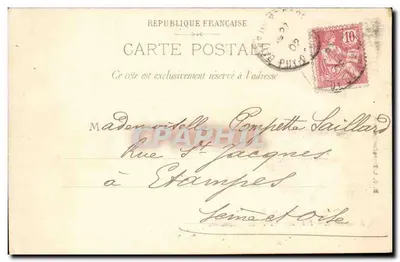 RÉPUBLIQUE FRANÇAISE
CARTE POSTALE
Ce côté est exclusivement réservé à l'adresse
10
PUY-D
02
CPAPHIL
Mademoiselle Pompette Saillard
Rue St Jacques
à Etampes
Seine et Oise